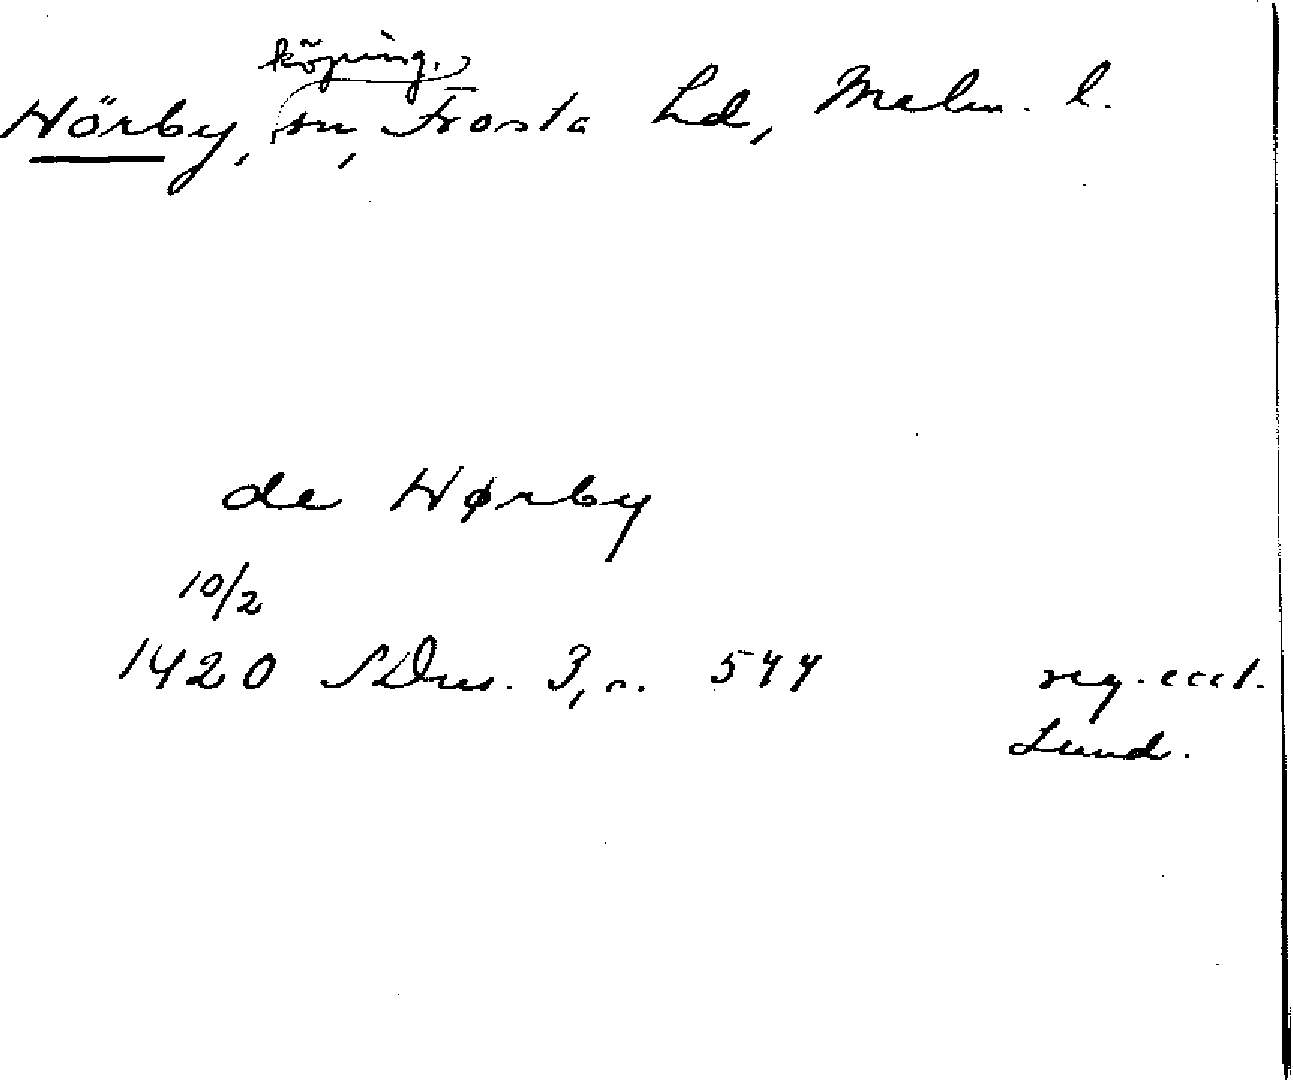 köping,
Hörby, sn, Frosta hd, Malm. l.
de Hørby
10/2
1420 SDns. 3, s. 544
reg. eccl.
Lund.